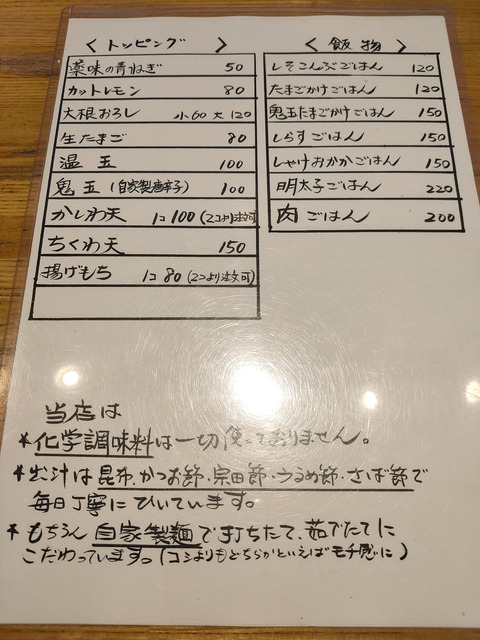 〈トッピング 〉
薬味の青ねぎ 50
カットレモン 80
大根おろし 小60 大120
生たまご 80
温玉 100
鬼玉(自家製唐辛子) 100
かしわ天 1コ 100(2コより注文可)
ちくわ天 150
揚げもち 1コ 80(2コより注文可)
〈 飯物 〉
しそこんぶごはん 120
たまごかけごはん 120
鬼玉たまごかけごはん 150
しらすごはん 150
しゃけおかかごはん 150
明太子ごはん 220
肉ごはん 200
当店は
*化学調味料は一切使っておりません。
*出汁は昆布、かつお節・宗田節・うるめ節・さば節で
毎日丁寧にひいています。
*もちろん自家製麺で打ちたて、茹でたてに
こだわっています。(コシよりもどちらかといえばモチ感に)